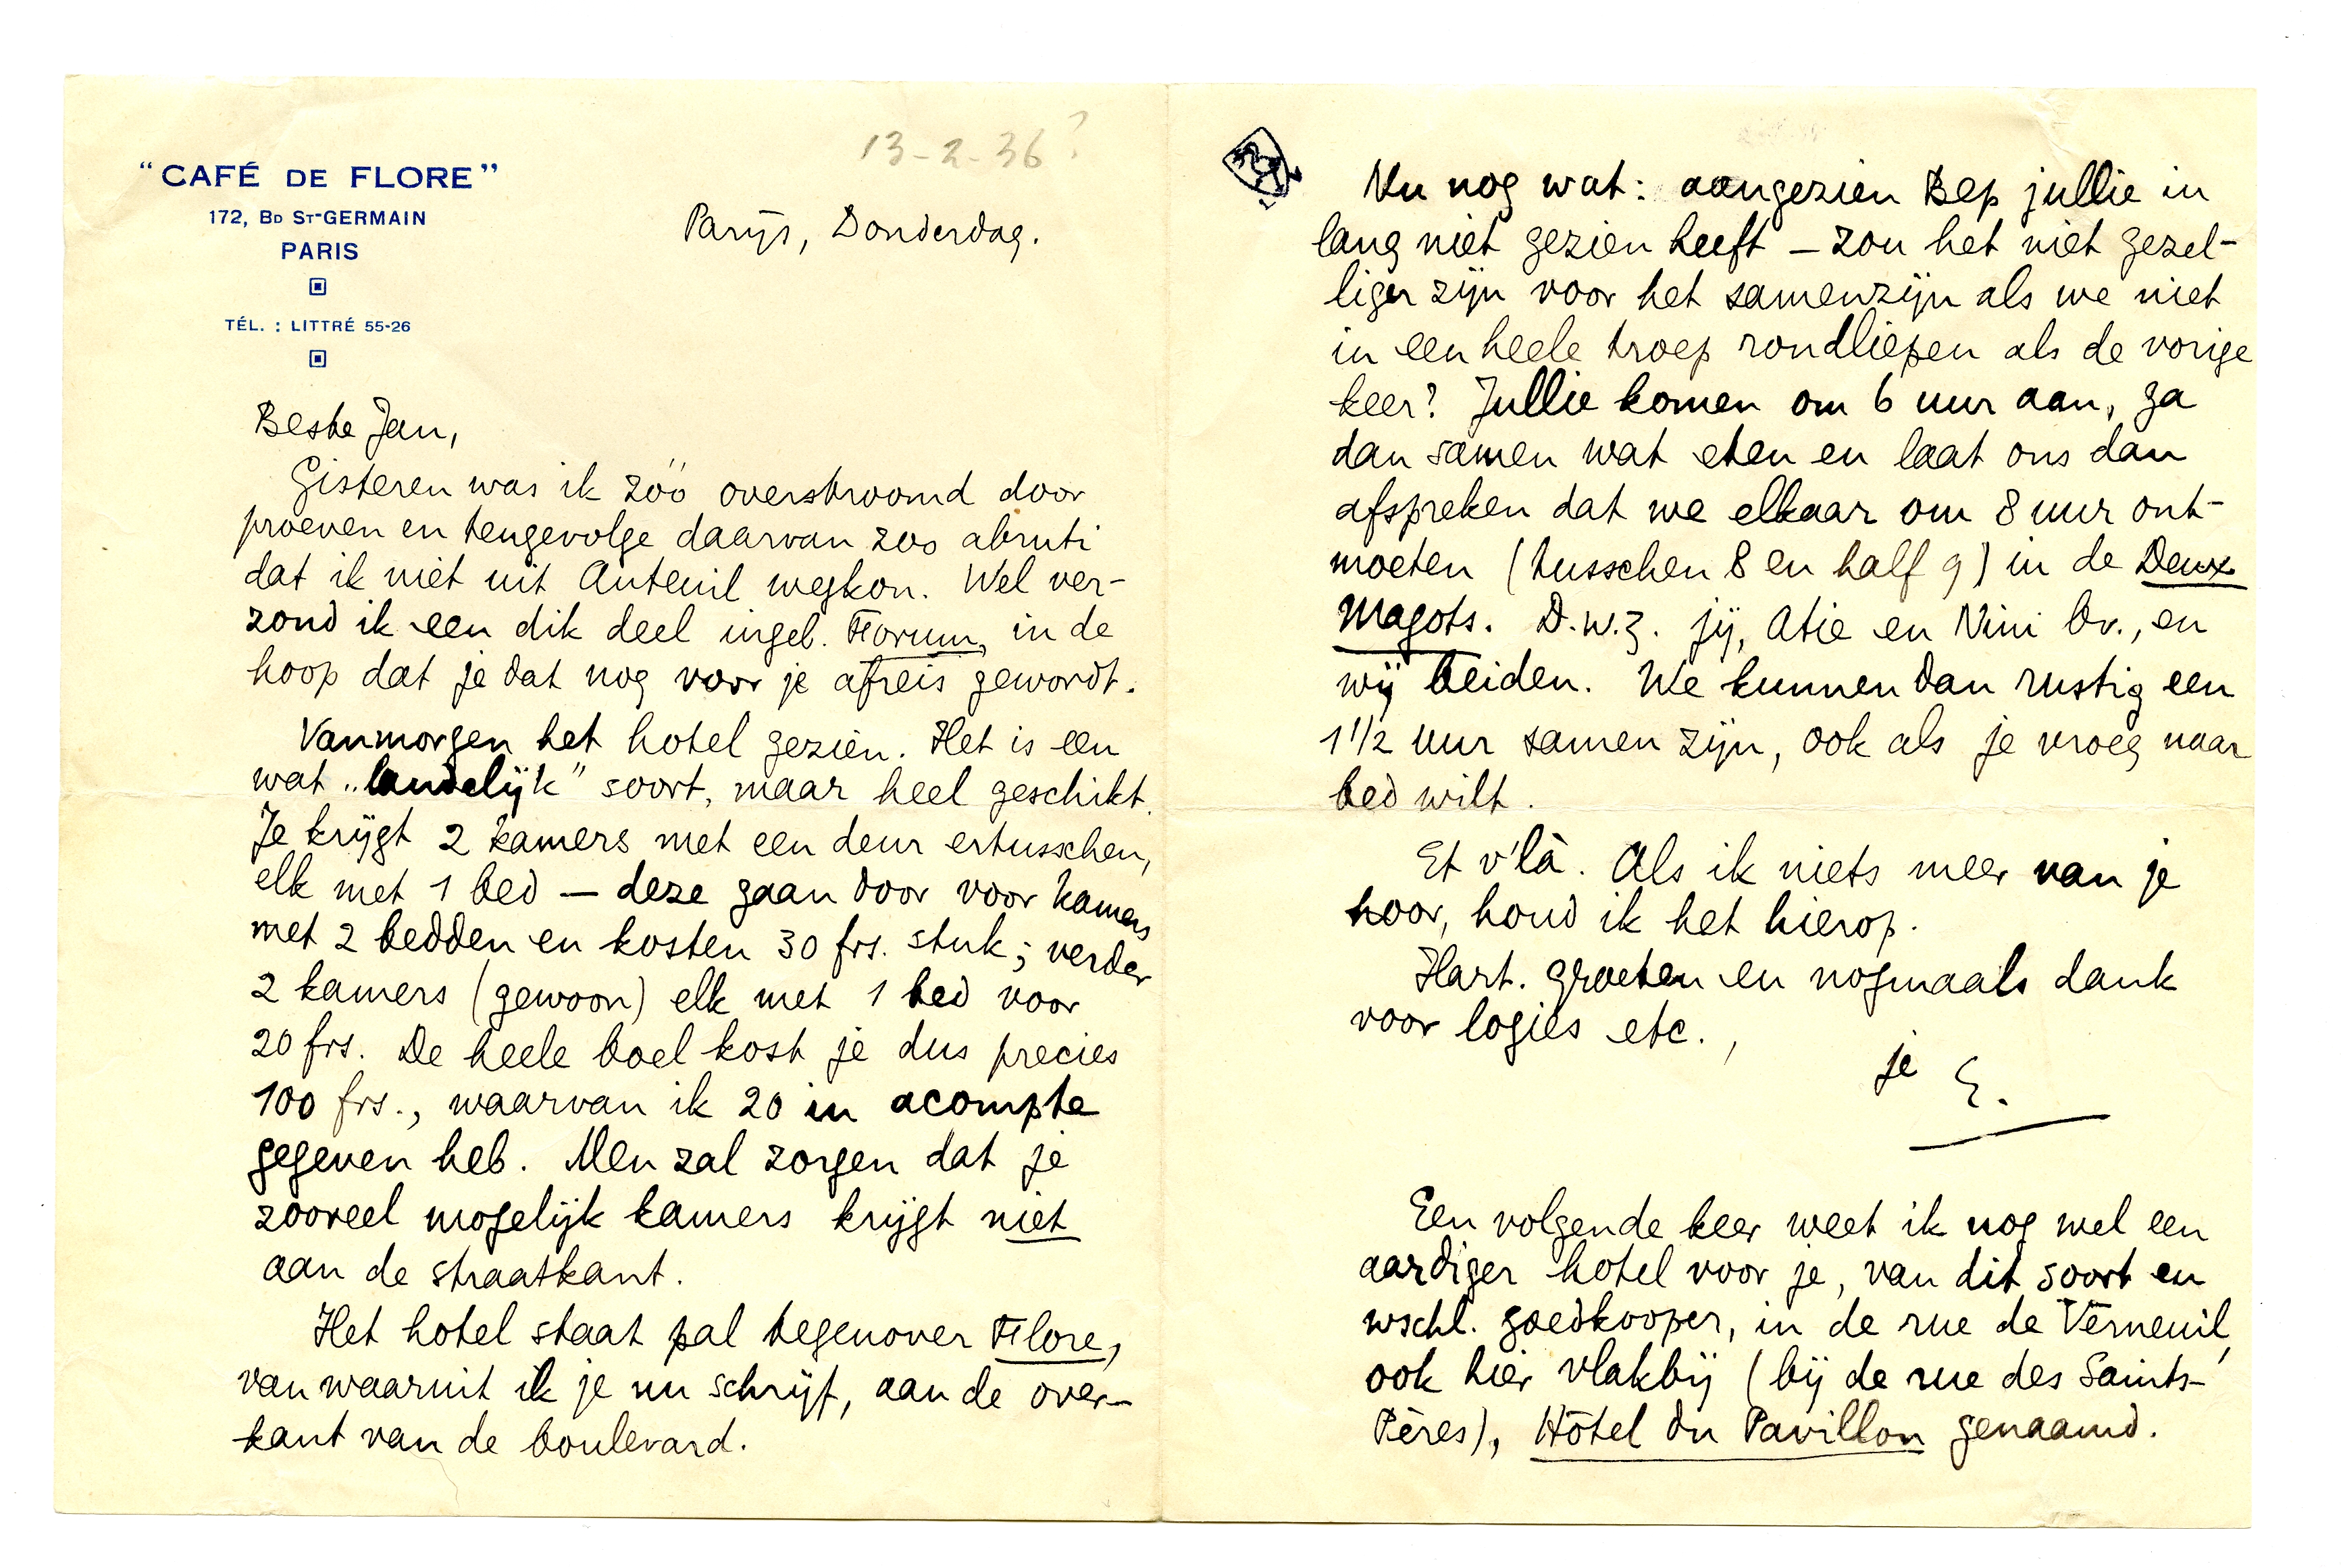 "CAFÉ DE FLORE"
172, BD ST-GERMAIN
PARIS
TÉL. : LITTRÉ 55-26
13-2-36?
Parijs, Donderdag.
Beste Jan,
Gisteren was ik zóó overstroomd door
proeven en tengevolge daarvan zoo abruti
dat ik niet uit Auteuil wegkon. Wel ver-
zond ik een dik deel ingeb. Forum, in de
hoop dat je dat nog voor je afreis gewordt.
Vanmorgen het hotel gezien. Het is een
wat „landelijk" soort, maar heel geschikt.
Je krijgt 2 kamers met een deur ertusschen,
elk met 1 bed — deze gaan door voor kamers
met 2 bedden en kosten 30 frs. stuk; verder
2 kamers (gewoon) elk met 1 bed voor
20 frs. De heele boel kost je dus precies
100 frs., waarvan ik 20 in acompte
gegeven heb. Men zal zorgen dat je
zooveel mogelijk kamers krijgt niet
aan de straatkant.
Het hotel staat pal tegenover Flore,
vanwaaruit ik je nu schrijf, aan de over-
kant van de boulevard.
Nu nog wat: aangezien Bep jullie in
lang niet gezien heeft — zou het niet gezel-
liger zijn voor het samenzijn als we niet
in een heele troep rondliepen als de vorige
keer? Jullie komen om 6 uur aan, ga
dan samen wat eten en laat ons dan
afspreken dat we elkaar om 8 uur ont-
moeten (tusschen 8 en half 9) in de Deux
Magots. D.w.z. jij, Atie en Nini Br., en
wij beiden. We kunnen dan rustig een
1 1/2 uur samen zijn, ook als je vroeg naar
bed wilt.
Et v'là. Als ik niets meer van je
hoor, houd ik het hierop.
Hart. groeten en nogmaals dank
voor logies etc.,
je E.
Een volgende keer weet ik nog wel een
aardiger hotel voor je, van dit soort en
wschl. goedkooper, in de rue de Verneuil,
ook hier vlakbij (bij de rue des Saints-
Pères), Hôtel du Pavillon genaamd.